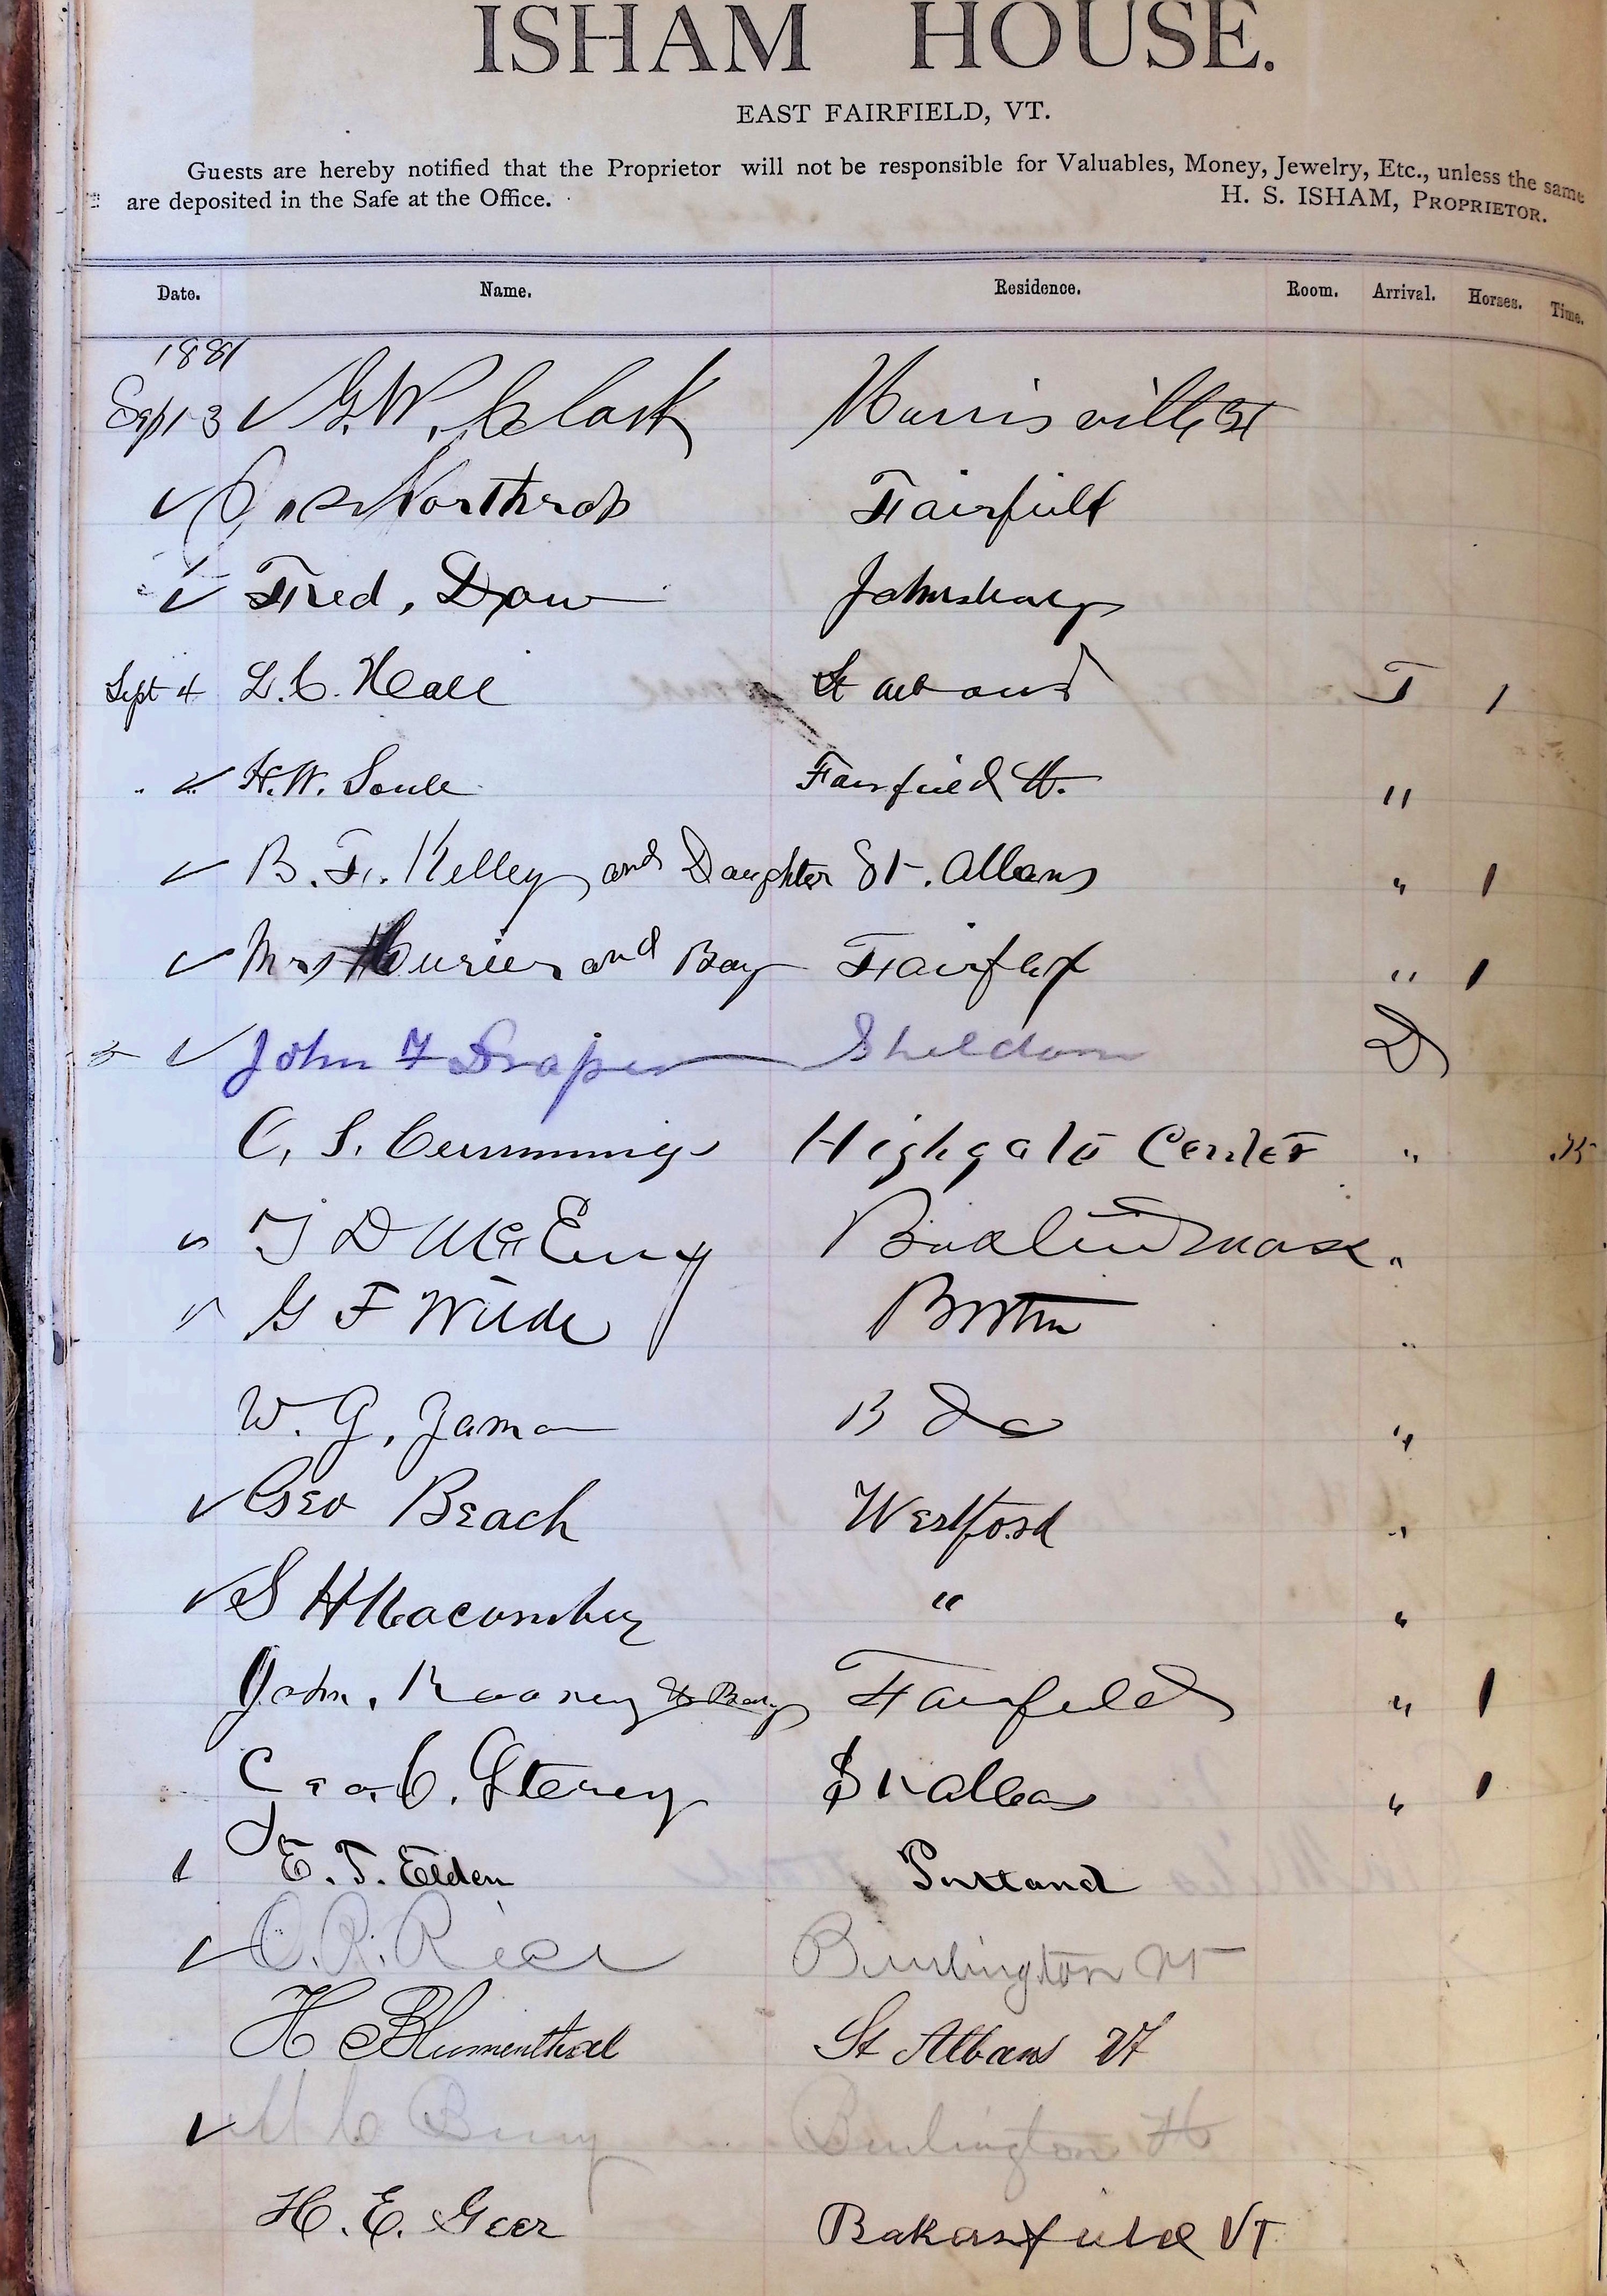 ISHAM HOUSE.
EAST FAIRFIELD, VT.
Guests are hereby notified that the Proprietor will not be responsible for Valuables, Money, Jewelry, Etc., unless the same
are deposited in the Safe at the Office. H. S. ISHAM, PROPRIETOR.
Date. Name. Residence. Room. Arrival. Horses. Time.
1881
Sept 3 ✓ G. W. Clark
✓ Northrop Fairfield
✓ Fred, Dow Johnsburg
Sept 4 L. C. Hall T 1
" ✓ H. W. Soule Fairfield Vt. "
✓ B. F. Kelley and Daughter St. Albans " 1
✓ Mrs and Boy Fairfax " 1
✓ John F Draper Sheldon D
C. S. Cummings Highgate Center "
✓ T D Mc Mass. "
✓ G F Wilde Boston "
W. G. "
✓ Geo Beach Westford "
✓ S H Macomber " "
John. Rooney & Boy Fairfield " 1
C. St Albans " 1
✓ E. T. Elden Portland
✓ C. R. Rice Burlington Vt
H Blumenthal St Albans Vt
✓ M C Burlington Vt
H. E. Geer Bakersfield VT